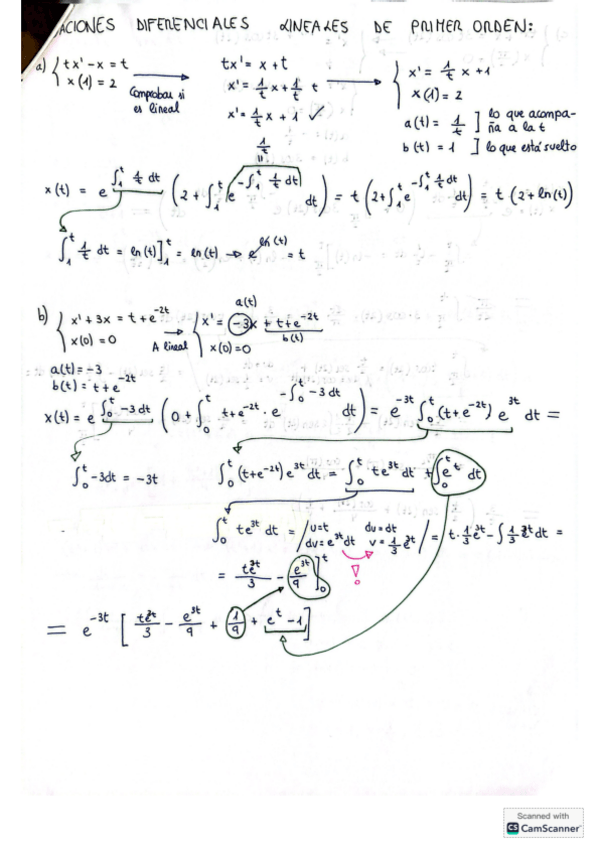 ACIONES DIFERENCIALES LINEALES DE PRIMER ORDEN:
a) { tx' - x = t
x(1) = 2
Comprobar si es lineal
tx' = x + t
x' = 1/t x + 1/t t
x' = 1/t x + 1 ✓
{ x' = 1/t x + 1
x(1) = 2
a(t) = 1/t ] lo que acompaña a la t
b(t) = 1 ] lo que está suelto
1/t
=
x(t) = e^{∫₁^t 1/t dt} ( 2 + ∫₁^t e^{-∫₁^t 1/t dt} dt ) = t ( 2 + ∫₁^t e^{-∫₁^t 1/t dt} dt ) = t ( 2 + ln(t) )
∫₁^t 1/t dt = ln(t) ]₁^t = ln(t) → e^{ln(t)} = t
b) { x' + 3x = t + e^{-2t}
x(0) = 0
A lineal
a(t)
{ x' = -3x + t + e^{-2t}
b(t)
x(0) = 0
a(t) = -3
b(t) = t + e^{-2t}
x(t) = e^{∫₀^t -3 dt} ( 0 + ∫₀^t t + e^{-2t} · e^{-∫₀^t -3 dt} dt ) = e^{-3t} ∫₀^t (t + e^{-2t}) e^{3t} dt =
∫₀^t -3dt = -3t
∫₀^t (t + e^{-2t}) e^{3t} dt = ∫₀^t t e^{3t} dt + ∫₀^t e^t dt
∫₀^t t e^{3t} dt = / u = t du = dt dv = e^{3t} dt v = 1/3 e^{3t} / = t · 1/3 e^{3t} - ∫ 1/3 e^{3t} dt =
= te^{3t}/3 - e^{3t}/9 ]₀^t !
= e^{-3t} [ te^{3t}/3 - e^{3t}/9 + 1/9 + e^t - 1 ]
Scanned with
CS CamScanner